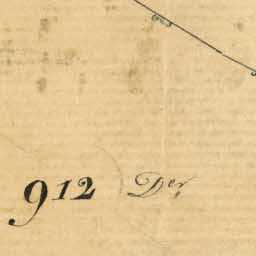 912 Der